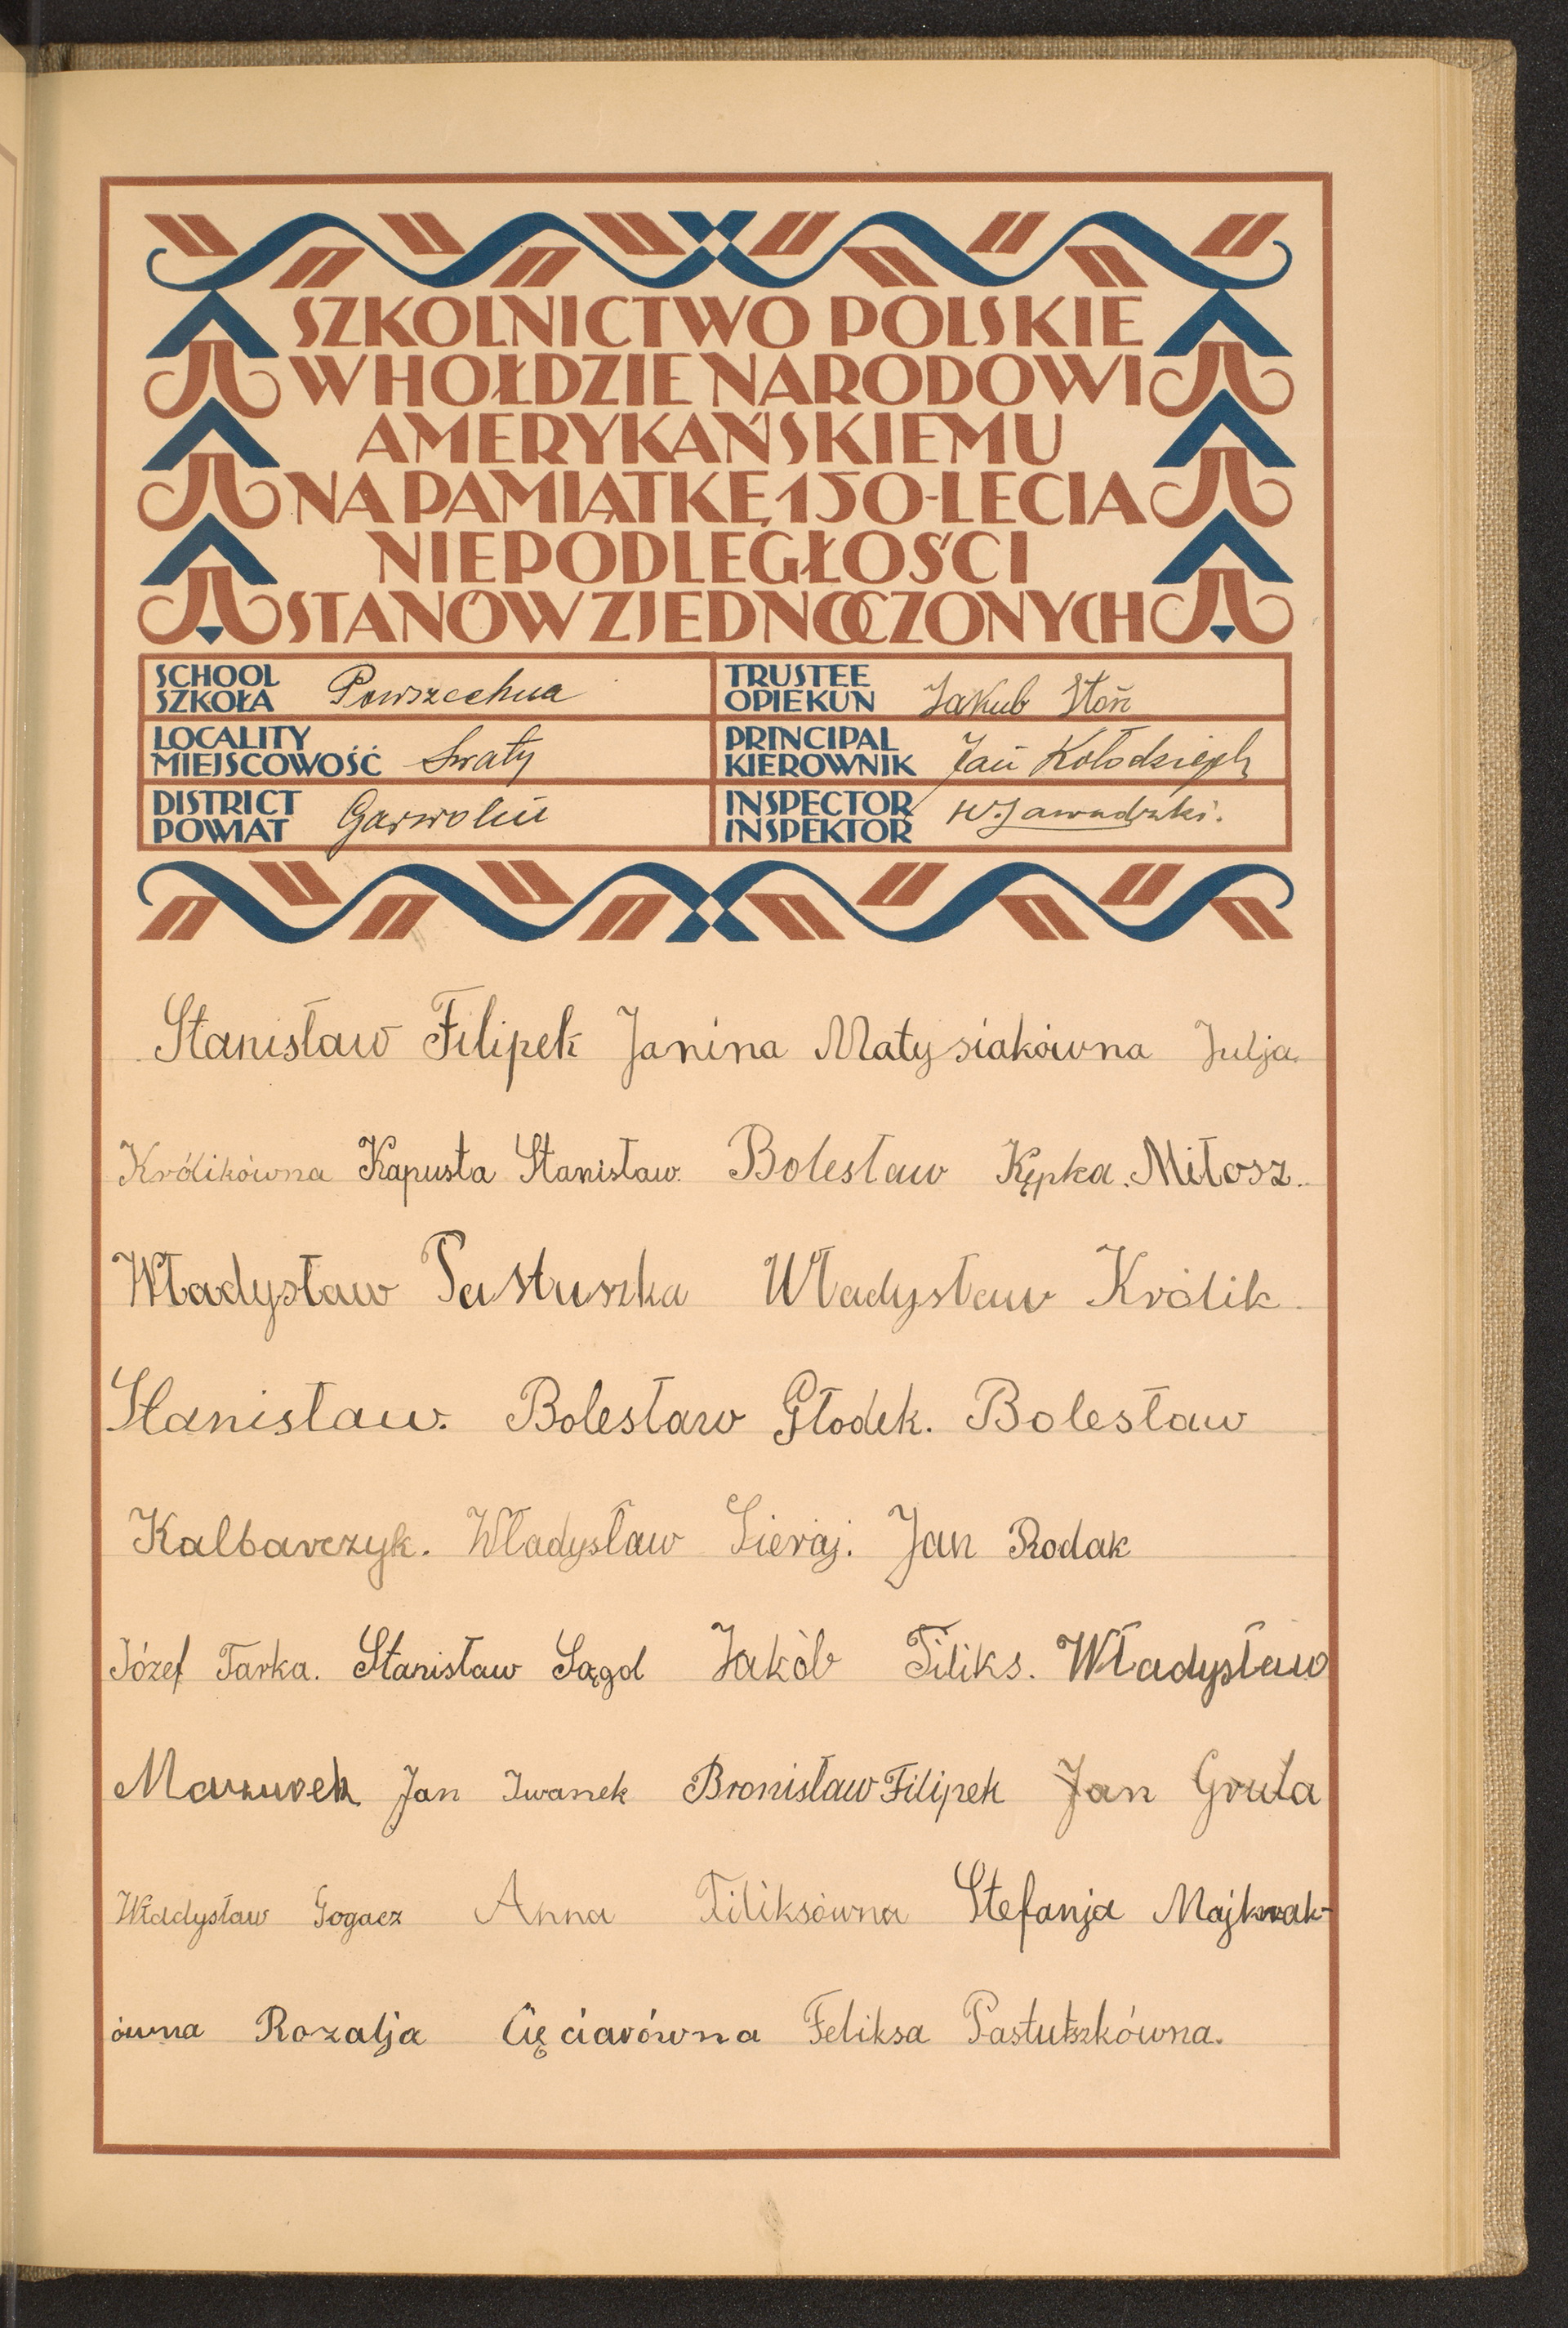 SZKOLNICTWO POLSKIE
W HOŁDZIE NARODOWI
AMERYKAŃSKIEMU
NA PAMIĄTKĘ 150-LECIA
NIEPODLEGŁOŚCI
STANÓW ZJEDNOCZONYCH
SCHOOL
SZKOŁA Powszechna
TRUSTEE
OPIEKUN Jakub Stoń
LOCALITY
MIEJSCOWOŚĆ Swaty
PRINCIPAL
KIEROWNIK Jan Kołodziejek
DISTRICT
POWIAT Garwolin
INSPECTOR
INSPEKTOR W. Zawadzki.
Stanisław Filipek Janina Matysiakówna Julja
Królikówna Kapusta Stanisław. Bolesław Kępka. Miłosz.
Władysław Pastuszka Władysław Królik
Stanisław. Bolesław Głodek. Bolesław
Kalbarczyk. Władysław Sieraj. Jan Rodak
Józef Tarka. Stanisław Sągol Jakób Filiks. Władysław
Mazurek Jan Iwanek Bronisław Filipek Jan Grula
Władysław Gogacz Anna Filiksówna Stefanja Majkwak-
ówna Rozalja Cięciarówna Feliksa Pastuszkówna.